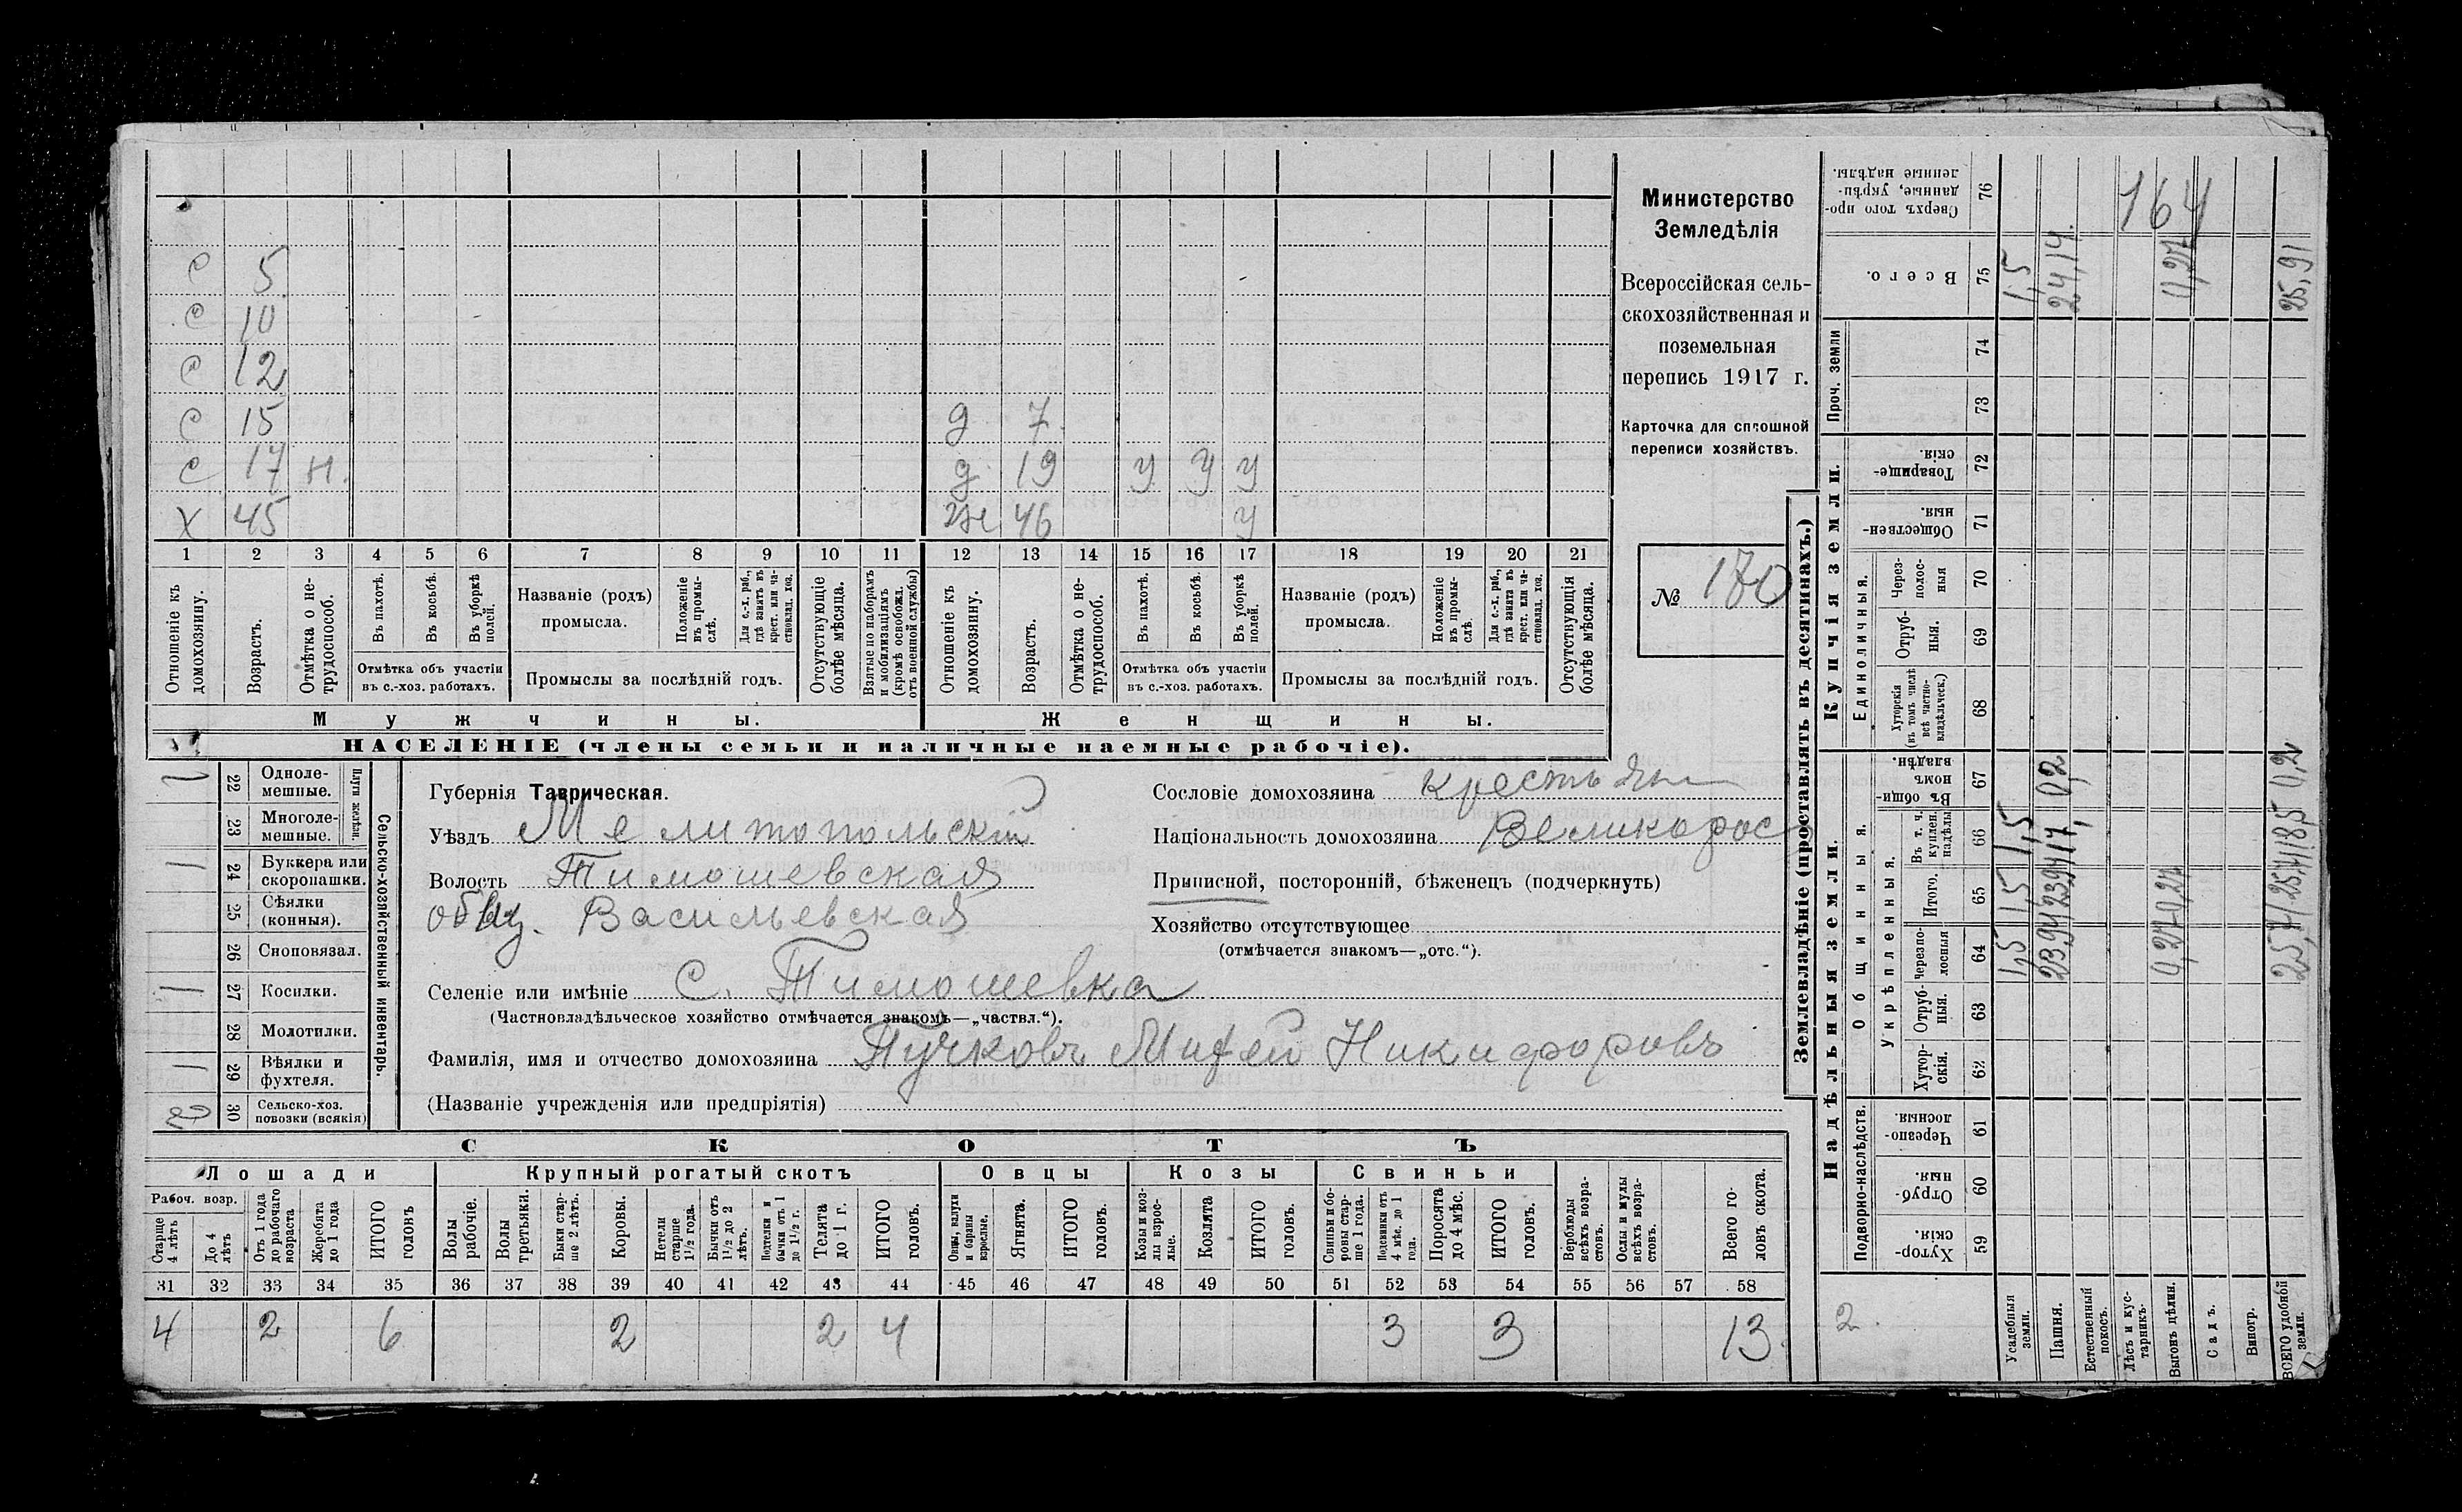 С 5
С 10
С 12
С 15 д 7
С 17 н. д. 19 у у у
Х 45 ж 46 у
1 2 3 4 5 6 7 8 9 10 11 12 13 14 15 16 17 18 19 20 21
Отношеніе къ домохозяину.
Возрастъ.
Отмѣтка о не-трудоспособ.
Въ пахотѣ.
Въ косьбѣ.
Въ уборкѣ полей.
Отмѣтка объ участіи
въ с.-хоз. работахъ.
Названіе (родъ)
промысла.
Положеніе въ промы-слѣ.
Для с.-х. раб., гдѣ занятъ въ крест. или ча-стновлад. хоз.
Промыслы за послѣдній годъ.
Отсутствующіе болѣе мѣсяца.
Взятые по наборамъ и мобилизаціямъ (кромѣ освобожд. отъ военной службы)
Отношеніе къ домохозяину.
Возрастъ.
Отмѣтка о не-трудоспособ.
Въ пахотѣ.
Въ косьбѣ.
Въ уборкѣ полей.
Отмѣтка объ участіи
въ с.-хоз. работахъ.
Названіе (родъ)
промысла.
Положеніе въ промы-слѣ.
Для с.-х. раб., гдѣ занята въ крест. или ча-стновлад. хоз.
Промыслы за послѣдній годъ.
Отсутствующія болѣе мѣсяца.
Мужчины.
Женщины.
НАСЕЛЕНІЕ (члены семьи и наличные наемные рабочіе).
Министерство
Земледѣлія
Всероссійская сель-
скохозяйственная и
поземельная
перепись 1917 г.
Карточка для сплошной
переписи хозяйствъ.
№ 170
1 22 Одноле-мешные.
23 Многоле-мешные.
Плуги желѣзн.
1 24 Буккера или скоропашки.
25 Сѣялки (конныя).
26 Сноповязал.
1 27 Косилки.
28 Молотилки.
1 29 Вѣялки и фухтеля.
2 30 Сельско-хоз. повозки (всякія)
Сельско-хозяйственный инвентарь.
Губернія Таврическая.
Уѣздъ Мелитопольскій
Волость Тимошевская
Васильевская
Селеніе или имѣніе с. Тимошевка
(Частновладѣльческое хозяйство отмѣчается знакомъ—„частвл.“).
Фамилія, имя и отчество домохозяина Тучковъ Мифей Никифоровъ
(Названіе учрежденія или предпріятія)
Сословіе домохозяина
Національность домохозяина Великорос
Приписной, посторонній, бѣженецъ (подчеркнуть)
Хозяйство отсутствующее
(отмѣчается знакомъ—„отс.“).
СКОТЪ
Лошади
Крупный рогатый скотъ
Овцы
Козы
Свиньи
Рабоч. возр.
Старше 4 лѣтъ
До 4 лѣтъ
Отъ 1 года до рабочаго возраста
Жеребята до 1 года
ИТОГО головъ
Волы рабочіе.
Волы третьяки.
Быки стар-ше 2 лѣтъ.
Коровы.
Нетели старше 1½ года.
Бычки отъ 1½ до 2 лѣтъ.
Подтелки и бычки отъ 1 до 1½ г.
Телята до 1 г.
ИТОГО головъ.
Овцы, валухи и бараны взрослые.
Ягнята.
ИТОГО головъ.
Козы и коз-лы взрос-лые.
Козлята
ИТОГО головъ.
Свиньи и бо-ровы стар-ше 1 года.
Подсвинки отъ 4 мѣс. до 1 года.
Поросята до 4 мѣс.
ИТОГО головъ.
Верблюды всѣхъ возра-стовъ.
Ослы и мулы всѣхъ возра-стовъ.
Всего го-ловъ скота.
31 32 33 34 35 36 37 38 39 40 41 42 43 44 45 46 47 48 49 50 51 52 53 54 55 56 57 58
4 2 6 2 2 4 3 3 13.
Землевладѣніе (проставлять въ десятинахъ.)
Надѣльныя земли.
Купчія земли.
Проч. земли
Подворно-наслѣдств.
Общинныя.
Укрѣпленныя.
Единоличныя.
Сверхъ того про-данные, укрѣп-ленные надѣлы. 76
Всего. 75
74
73
Товарище-скія. 72
Обществен-ныя. 71
Через-полос-ныя 70
Отруб-ныя. 69
Хуторскія (въ томъ числѣ всѣ частно-владѣльческ.) 68
Въ общин-номъ владѣн. 67
Въ т. ч. куплен. надѣлы 66
Итого. 65
Черезпо-лосныя 64
Отруб-ныя. 63
Хутор-скія. 62
Черезпо-лосныя. 61
Отруб-ныя. 60
Хутор-скія. 59
2.
Усадебныя земли. 1,5 1,5 1,5 1,5
Пашня. 23,94 23,94 0,2 24,14.
Естественный покосъ.
Лѣсъ и кус-тарникъ.
Выгонъ цѣлин. 0,27 0,27 0,27
Садъ.
Виногр.
ВСЕГО удобной земли. 25,71 25,71 0,2 25,91
164